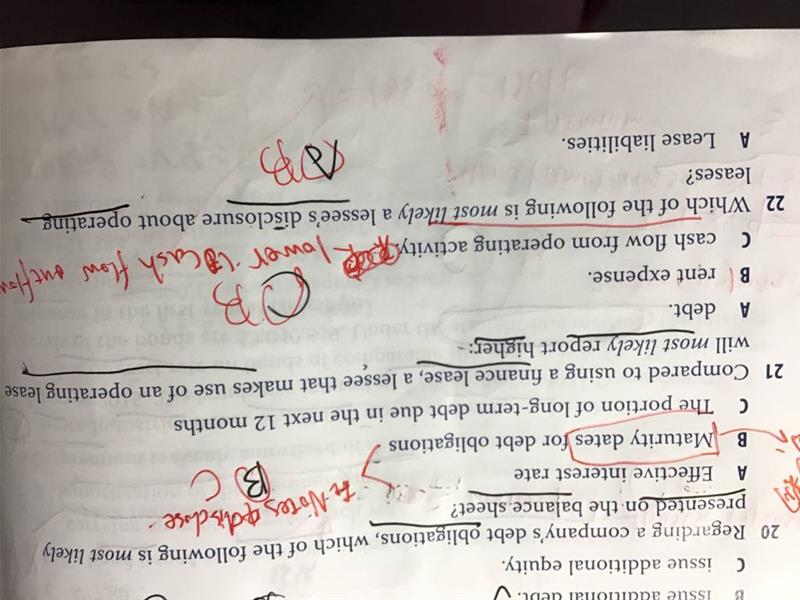 B issue additional debt.
C issue additional equity.
20 Regarding a company's debt obligations, which of the following is most likely
presented on the balance sheet?
A Effective interest rate
B Maturity dates for debt obligations
C The portion of long-term debt due in the next 12 months
In Notes & disclose
B C
21 Compared to using a finance lease, a lessee that makes use of an operating lease
will most likely report higher:
A debt.
B rent expense.
C cash flow from operating activity.
B
lower cash flow outflow
22 Which of the following is most likely a lessee's disclosure about operating
leases?
A Lease liabilities.
B